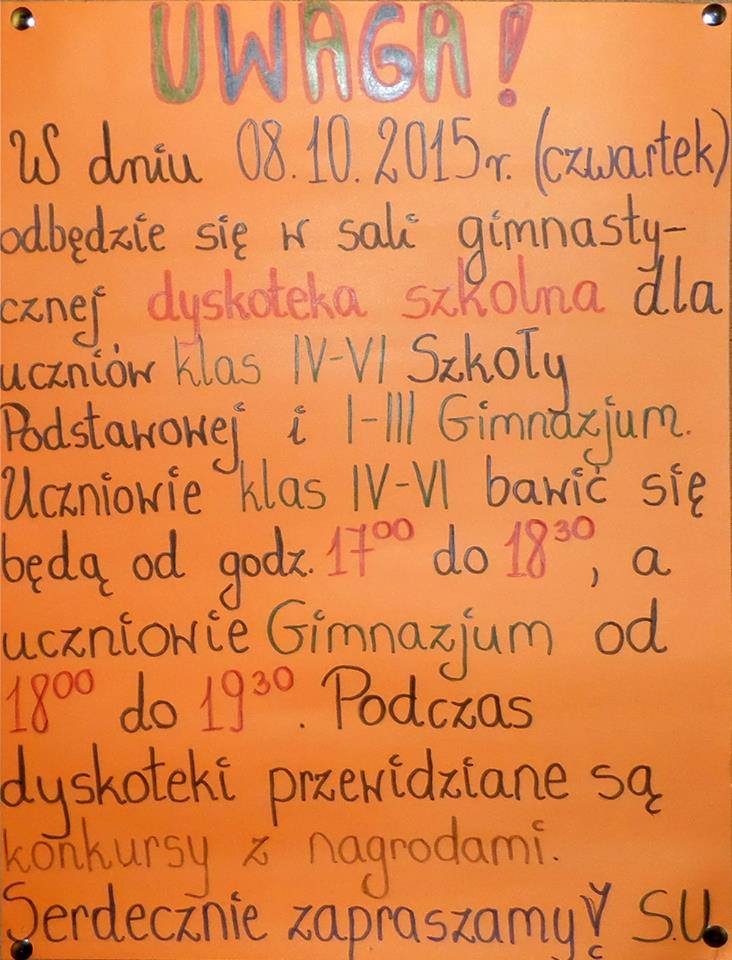 UWAGA!
W dniu 08.10.2015r. (czwartek)
odbędzie się w sali gimnasty-
cznej dyskoteka szkolna dla
uczniów klas IV-VI Szkoły
Podstawowej i I-III Gimnazjum.
Uczniowie klas IV-VI bawić się
będą od godz. 17⁰⁰ do 18³⁰, a
uczniowie Gimnazjum od
18⁰⁰ do 19³⁰. Podczas
dyskoteki przewidziane są
konkursy z nagrodami.
Serdecznie zapraszamy! S.U.